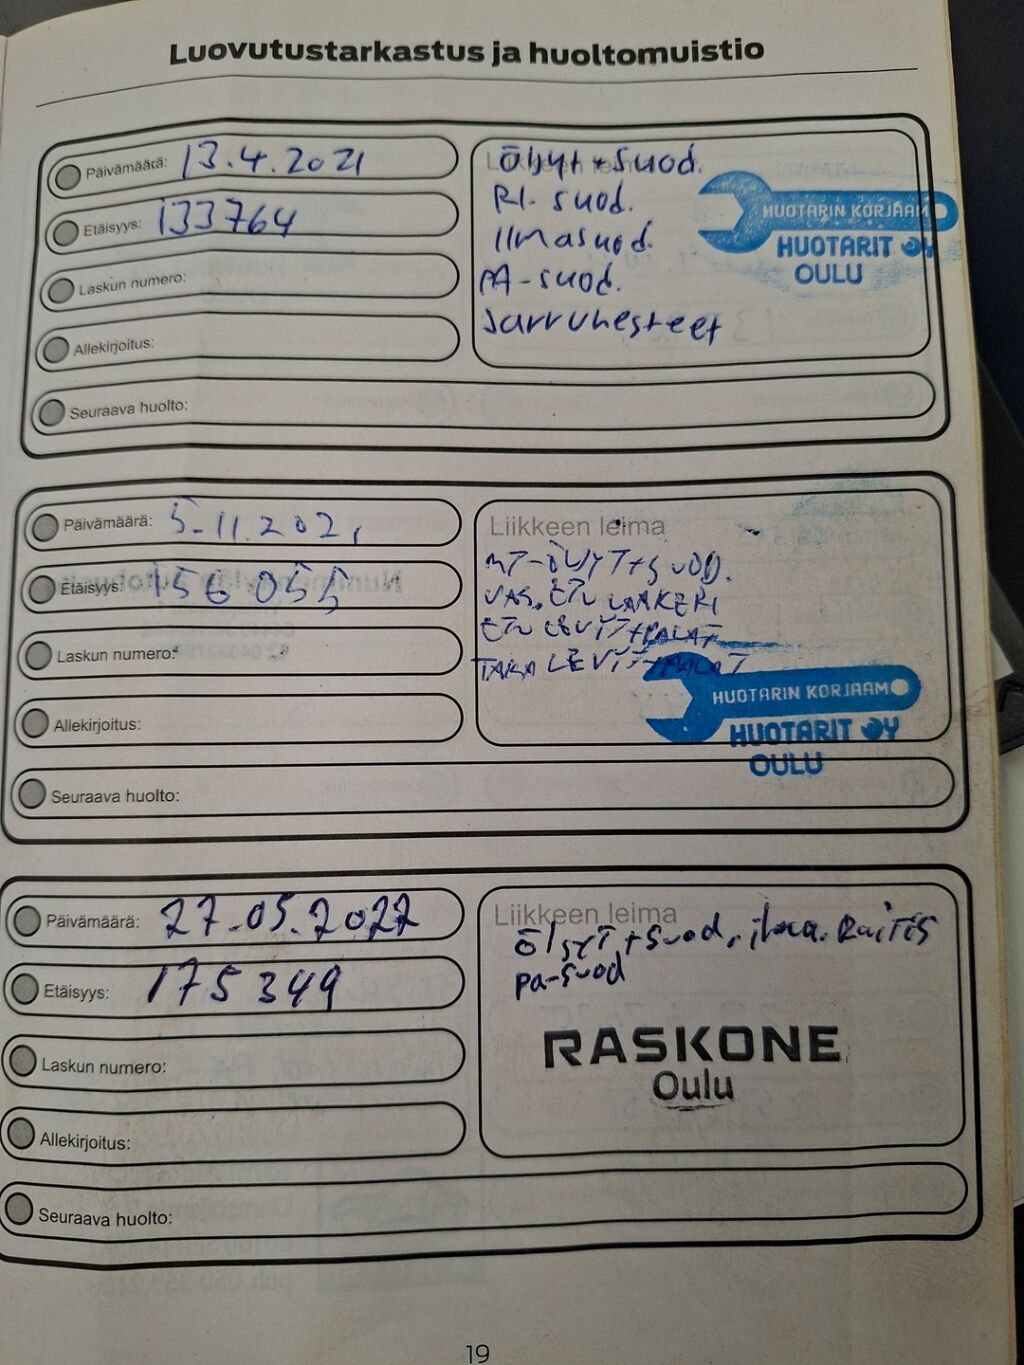 Luovutustarkastus ja huoltomuistio
Päivämäärä: 13.4.2021
Etäisyys: 133764
Laskun numero:
Allekirjoitus:
Seuraava huolto:
Öljyt + suod.
RI. suod.
Ilmasuod.
PA-suod.
Jarrunesteet
HUOTARIN KORJAAMO
HUOTARIT OY
OULU
Päivämäärä: 5.11.2021
Etäisyys: 156055
Laskun numero:
Allekirjoitus:
Seuraava huolto:
Liikkeen leima
MT-ÖLJYT+SUOD.
VAS. ETU LAAKERI
ETU LEVYT+PALAT
TAKA LEVYT+PALAT
HUOTARIN KORJAAMO
HUOTARIT OY
OULU
Päivämäärä: 27.05.2022
Etäisyys: 175349
Laskun numero:
Allekirjoitus:
Seuraava huolto:
Liikkeen leima
öljyt + suod, ilma. Raitis
pa-suod
RASKONE
Oulu
19